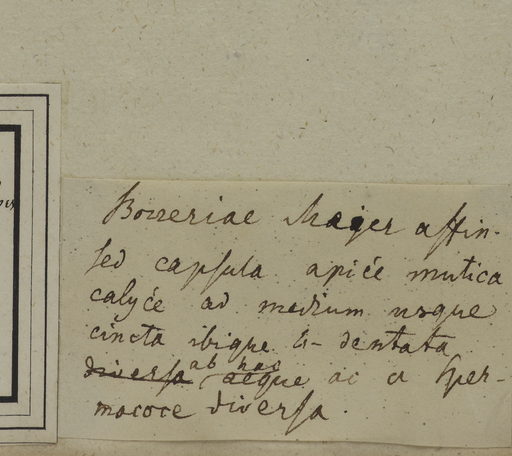 Borreriae Majer affin.
sed capsula apice mutica
calyce ad medium usque
cincta ibique 4-dentata
diversa ab hac aeque ac a Sper-
macoce diversa.